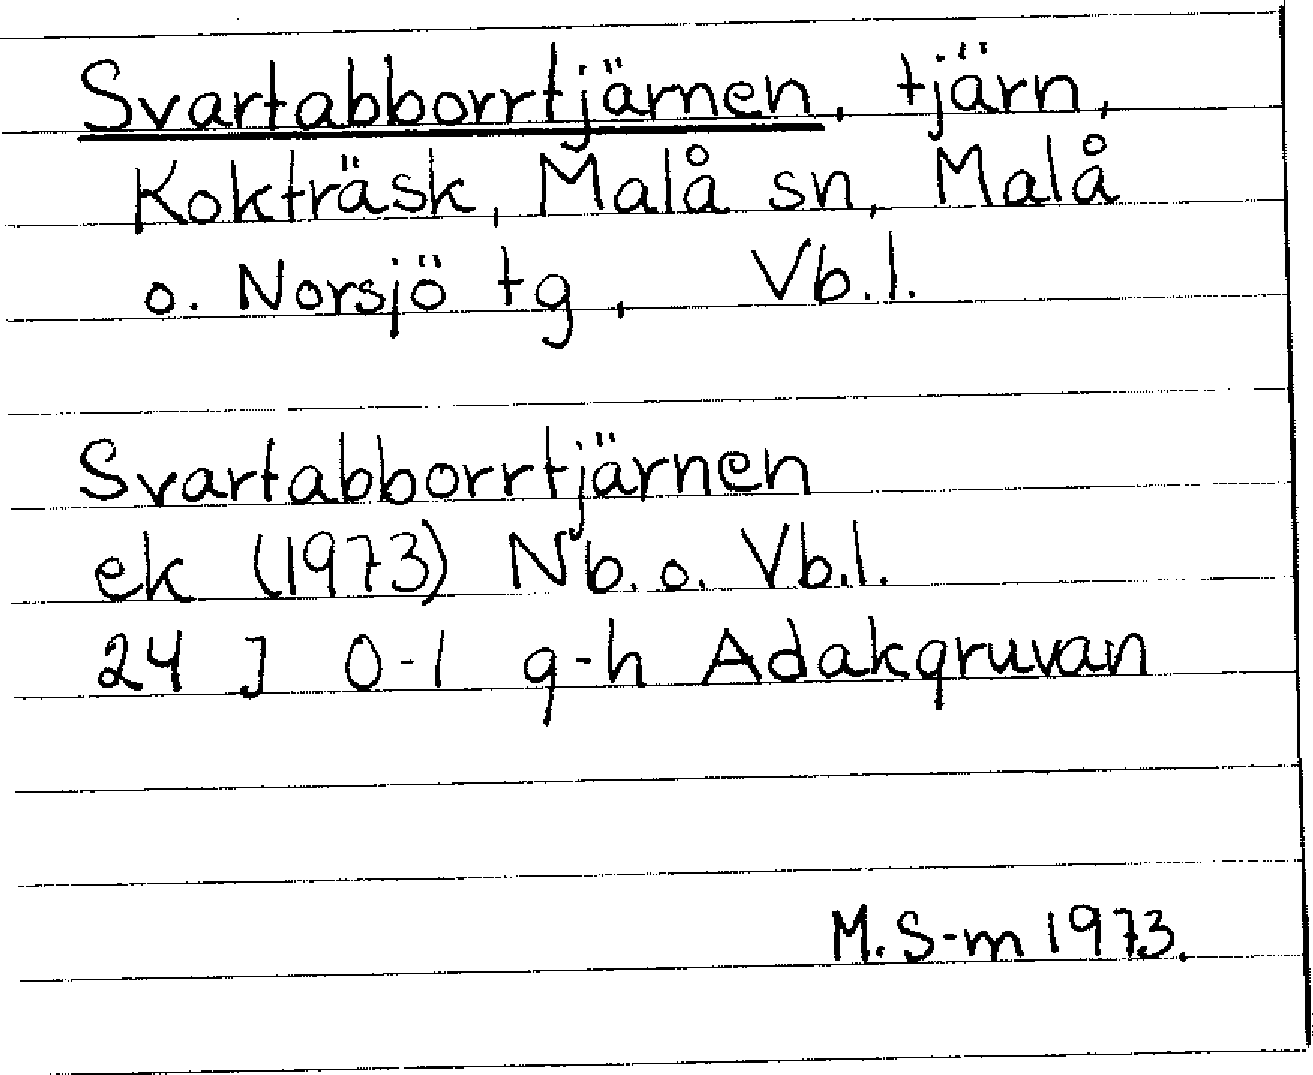 Svartabborrtjärnen, tjärn,
Kokträsk, Malå sn, Malå
o. Norsjö tg, Vb.l.
Svartabborrtjärnen
ek (1973) Nb. o. Vb.l.
24 J 0-1 g-h Adakgruvan
M. S-m 1973.